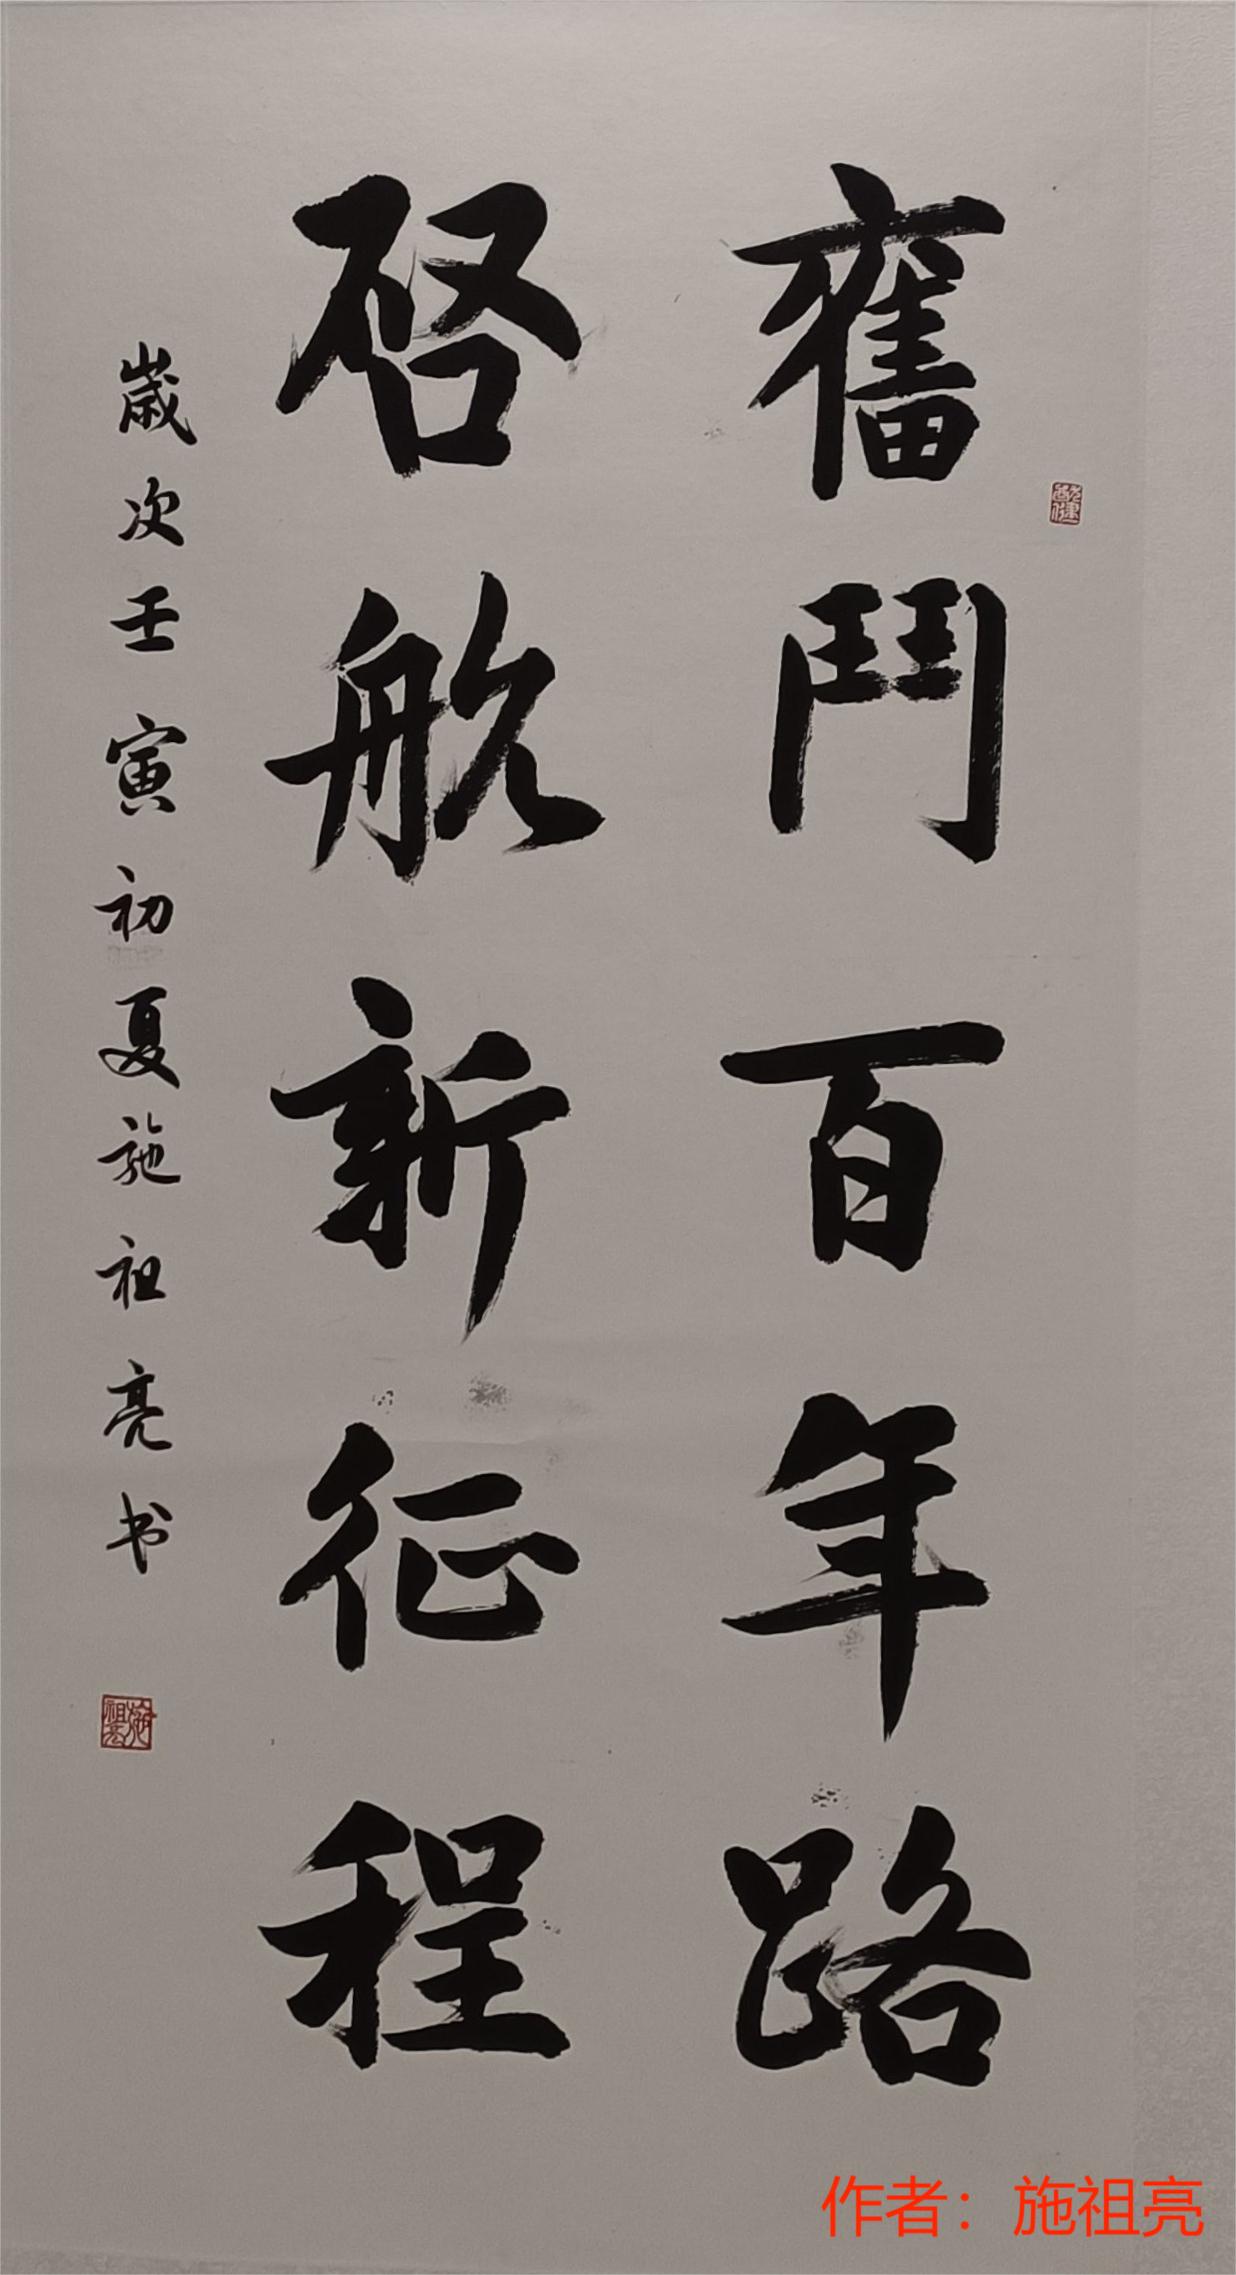 奮鬥百年路
启航新征程
歲次壬寅初夏施祖亮书
施祖亮
作者：施祖亮